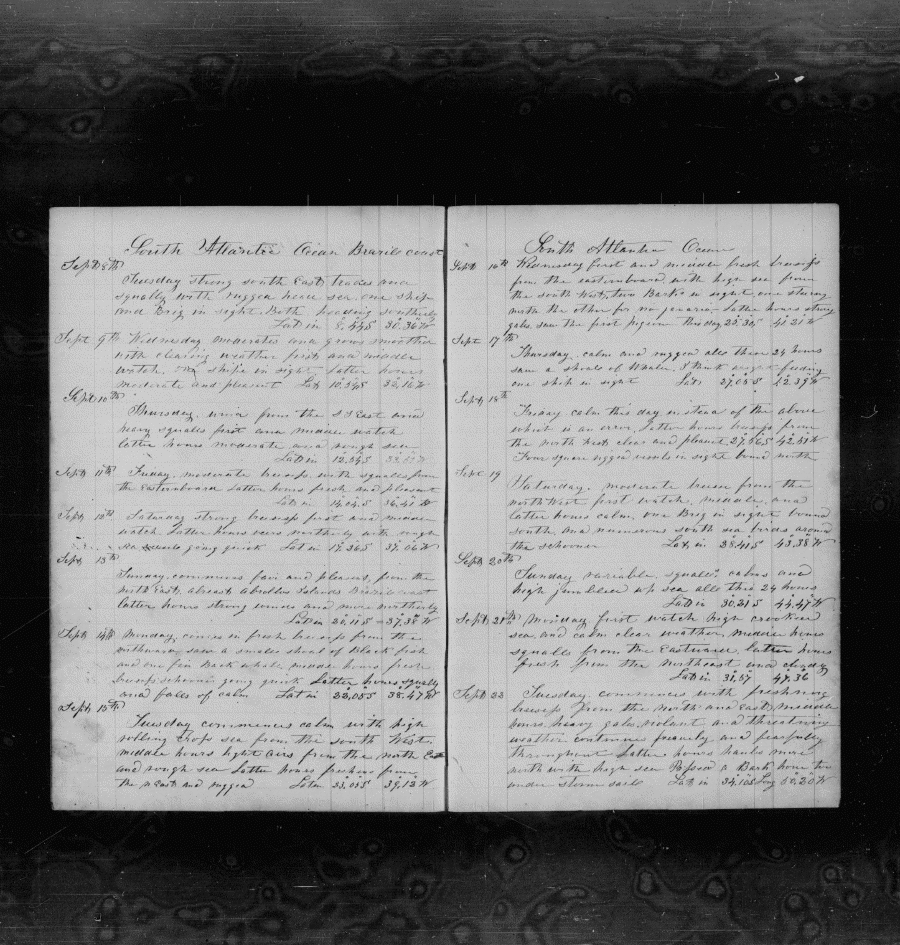 South Atlantic Ocean Brazils coast
Sept 8th
Tuesday strong south East trades and
squally with rugged head sea one ship
and Brig in sight Both heading southerly
Lat in 8,44S 30.36 W
Sept 9th Wednesday moderates and grows smoother
with clearing weather first and middle
watch. one ship in sight latter hours
moderate and pleasant Lat 10,34S 32,16 W
Sept 10th
Thursday, wind from the S S East and
heavy squalls first and middle watch
latter hours moderate and rough sea
Lat in 12,34S
Sept 11th Friday, moderate breezes with squalls from
the Easternboard latter hours fresh and pleasant
Lat in 14,04.S 36.41 W
Sept 12th Saturday strong breezes first and middle
watch latter hours northerly with rough
sea going quick Lat in 17,36S 37.06 W
Sept 13th
Sunday commences fair and pleasant, from the
north East, abreast Abrolhos Islands Brazils coast
latter hours strong and more northerly
Lat in 20,11S 37,38 W
Sept 14th Monday, comes in fresh breezes from the
saw a small shoal of Black fish
and one fin Back whale, middle hours fresh
breezes schooner going quick latter hours squally
and falls of calm Lat in 22,05S 38.47 W
Sept 15th
Tuesday commences calm with high
rolling cross sea from the south West,
middle hours light airs from the north East
and rough sea latter hours freshens from
the n East and rugged Lat in 23,05S 39,12 W
South Atlantic Ocean
Sept 16th Wednesday first and middle fresh breezes
from the easternboard with high sea from
the south West, two Barks in sight, one steering
north the other for no latter hours strong
gales, saw the first pigeon this day 25,30S 41,21 W
Sept 17th
Thursday calm and rugged all these 24 hours
saw a shoal of Whales, I think feeding
one ship in sight Lat 27,05S 42.39 W
Sept 18th
Friday calm this day instead of the above
which is an error, latter hours breezes from
the north West clear and pleasant 27,56S 42.51 W
Four square rigged vessels in sight bound north
Sept 19
Saturday. moderate breeze from the
north West first watch, middle, and
latter hours calm, one Brig in sight bound
south, and numerous south sea birds around
the schooner Lat in 28.41S 43.38 W
Sept 20th
Sunday variable, squalls calms and
high jumbled up sea all this 24 hours
Lat in 30.21S 44.47 W
Sept 21st Monday first watch high crooked
sea, and calm clear weather, middle hours
squalls from the Eastward, latter hours
fresh from the northeast and cloudy
Lat in 31,57 47.36
Sept 22 Tuesday commences with freshning
breezes from the north and East, middle
hours, heavy gales, violent and threatning
weather continues and fearfully
throughout latter hours hauls more
north with high sea Passed a Bark hove too
under storm sails Lat in 34,10S Long 50,20 W